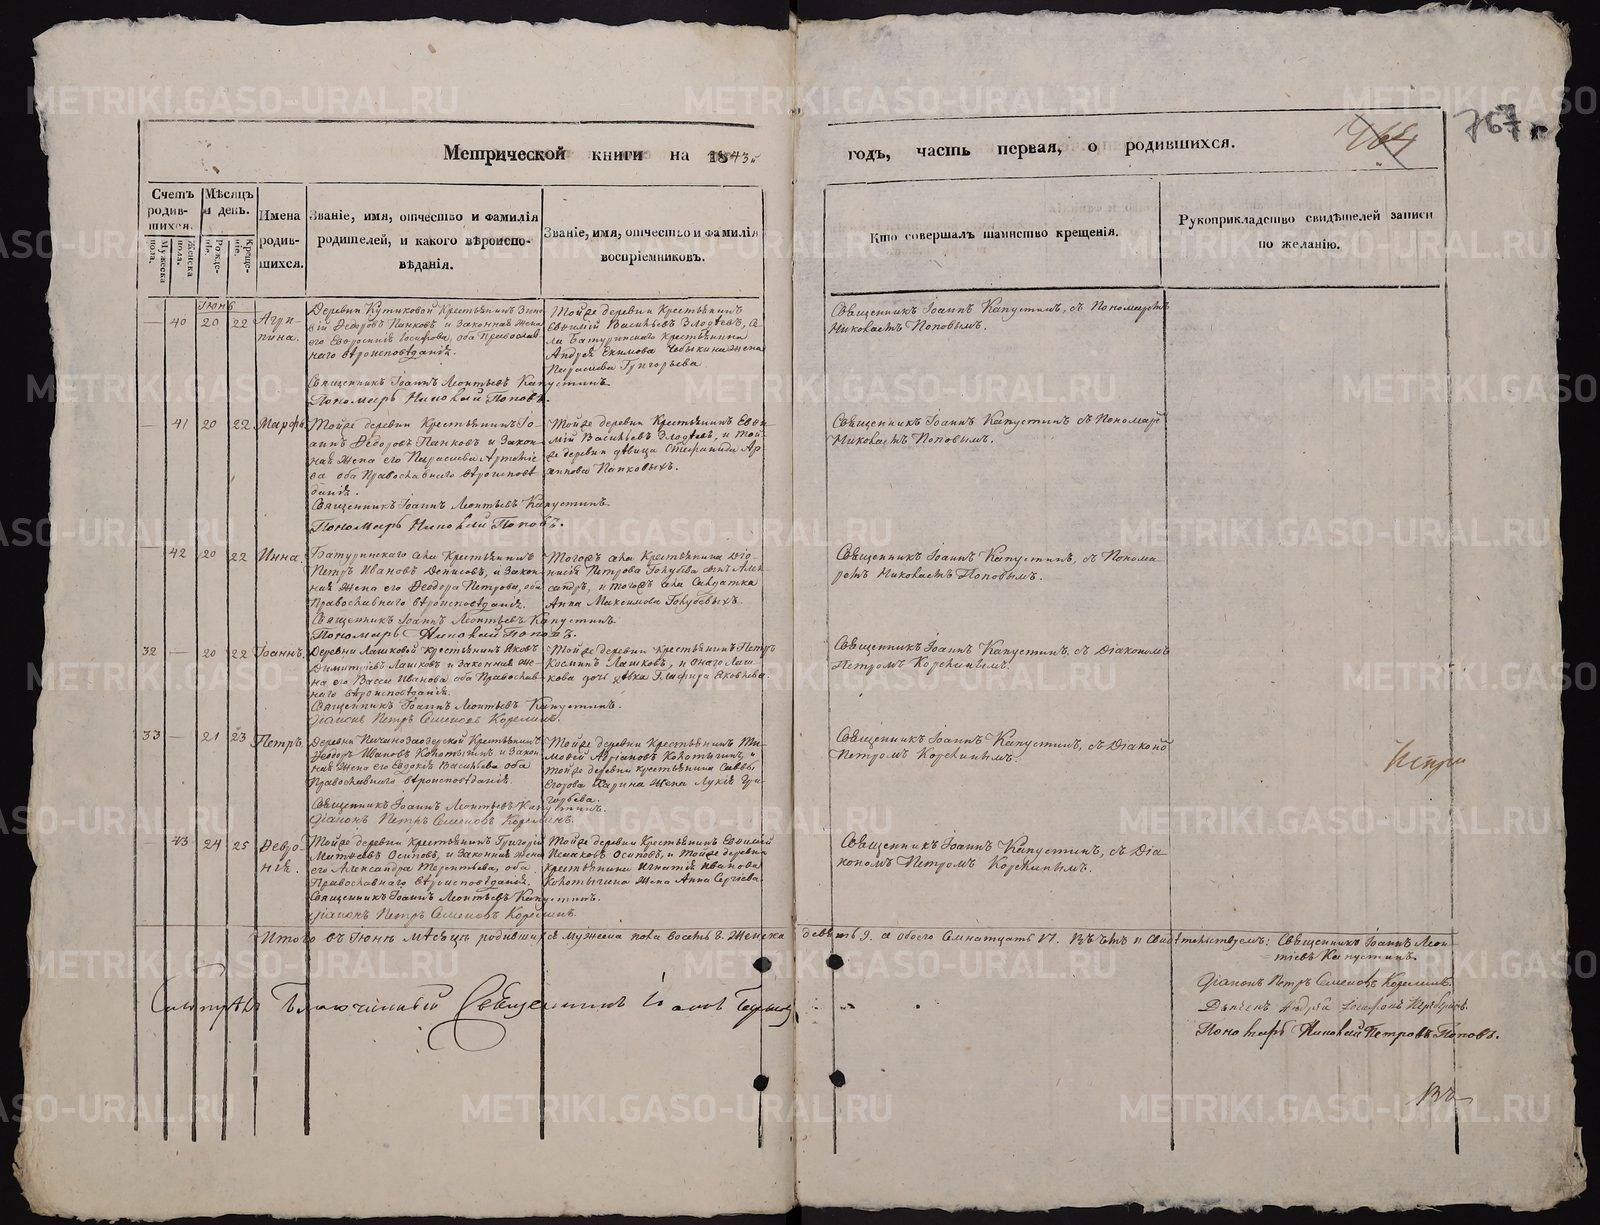 Метрической книги на 1843й
годъ, часть первая, о родившихся.
767
Счетъ родив-шихся.
Мужеска пола.
Женска пола.
Мѣсяцъ и день.
Рожде-нія.
Креще-нія.
Имена родив-шихся.
Званіе, имя, отчество и фамилія
родителей, и какого вѣроиспо-
вѣданія.
Званіе, имя, отчество и фамилія
воспріемниковъ.
Кто совершалъ таинство крещенія.
Рукоприкладство свидѣтелей записи
по желанію.
Іюнь
40 20 22 Агри-
пина.
Деревни Кутиковой Крестьянинъ
Ѳедоровъ Панковъ и законная жена
его Евфросинія Іосифова, оба Православ-
наго вѣроисповѣданія.
Священникъ Іоаннъ Леонтьевъ Капустинъ.
Пономарь Николай Поповъ.
Тойже деревни Крестьянинъ
Евфимій Васильевъ Злодѣевъ, се-
ла Батуринскаго Крестьянина
Андрея Екимова Чебыкина жена
Параскева Григорьева
Священникъ Іоаннъ Капустинъ, съ Пономаремъ
Николаемъ Поповымъ.
41 20 22 Марфа.
Тойже деревни Крестьянинъ Іо-
аннъ Ѳедоровъ Панковъ и Закон-
ная жена его Параскева
оба Православнаго вѣроисповѣ-
данія.
Священникъ Іоаннъ Леонтьевъ Капустинъ.
Пономарь Николай Поповъ.
Тойже деревни Крестьянинъ Евфи-
мій Васильевъ Злодѣевъ, и той-
же деревни дѣвица Стефанида Ар-
Панковыхъ.
Священникъ Іоаннъ Капустинъ, съ Пономаре
Николаемъ Поповымъ.
42 20 22 Инна.
Батуринскаго села Крестьянинъ
Петръ Ивановъ Денисовъ, и Закон-
ная жена его Ѳеодора Петрова, оба
Православнаго вѣроисповѣданія.
Священникъ Іоаннъ Леонтьевъ Капустинъ.
Пономарь Николай Поповъ.
Тогожъ села Крестьянина Діо-
нисія Петрова Голубева сынъ Алек-
сандръ, и тогожъ села Солдатка
Анна Максимова Голубевыхъ.
Священникъ Іоаннъ Капустинъ, съ Понома
ремъ Николаемъ Поповымъ.
32 20 22 Іоаннъ.
Деревни Лашковой крестьянинъ Яковъ
Димитріевъ Лашковъ и законная же-
на его Васса Иванова оба Православ-
наго вѣроисповѣданія.
Священникъ Іоаннъ Леонтьевъ Капустинъ.
Діаконъ Петръ Семеновъ Корелинъ.
Тойже деревни крестьянинъ Петръ
Косминъ Лашковъ, и онаго Лаш-
кова дочь дѣвка Глафира Яковлева.
Священникъ Іоаннъ Капустинъ, съ Діакономъ
Петромъ Корелинымъ.
33 21 23 Петръ.
Деревни Крестьянинъ
Ѳедоръ Ивановъ Колотыгинъ и Закон
ная жена его Евдокія Васильева оба
Православнаго вѣроисповѣданія.
Священникъ Іоаннъ Леонтьевъ Капустинъ.
Діаконъ Петръ Семеновъ Корелинъ.
Тойже деревни Крестьянинъ Ти-
мофей Адріановъ Колотыгинъ, и
Тойже деревни крестьянина Саввы
Егорова жена Лукія Гри-
горьева.
Священникъ Іоаннъ Капустинъ, съ Діакономъ
Петромъ Корелинымъ.
43 24 25 Февро-
нія.
Тойже деревни крестьянинъ Григорій
Матвѣевъ Осиповъ, и Законная жена
его Александра Терентьева, оба
Православнаго вѣроисповѣданія.
Священникъ Іоаннъ Леонтьевъ Капустинъ.
Діаконъ Петръ Семеновъ Корелинъ.
Тойже деревни Крестьянинъ Евфимій
Исаковъ Осиповъ, и Тойже деревни
крестьянина Игнатія Иванова
Колотыгина жена Анна Сергіева.
Священникъ Іоаннъ Капустинъ, съ Діа-
кономъ Петромъ Корелинымъ.
Итого въ Іюнѣ мѣсяцѣ родившихся мужеска пола восемь 8. Женска девять 9. а обоего Семнатцать 17. Священникъ Іоаннъ Леон-
тіевъ Капустинъ.
Діаконъ Петръ Семеновъ Корелинъ.
Пономарь Николай Петровъ Поповъ.
Благочинный Священникъ Іоаннъ
METRIKI.GASO-URAL.RU